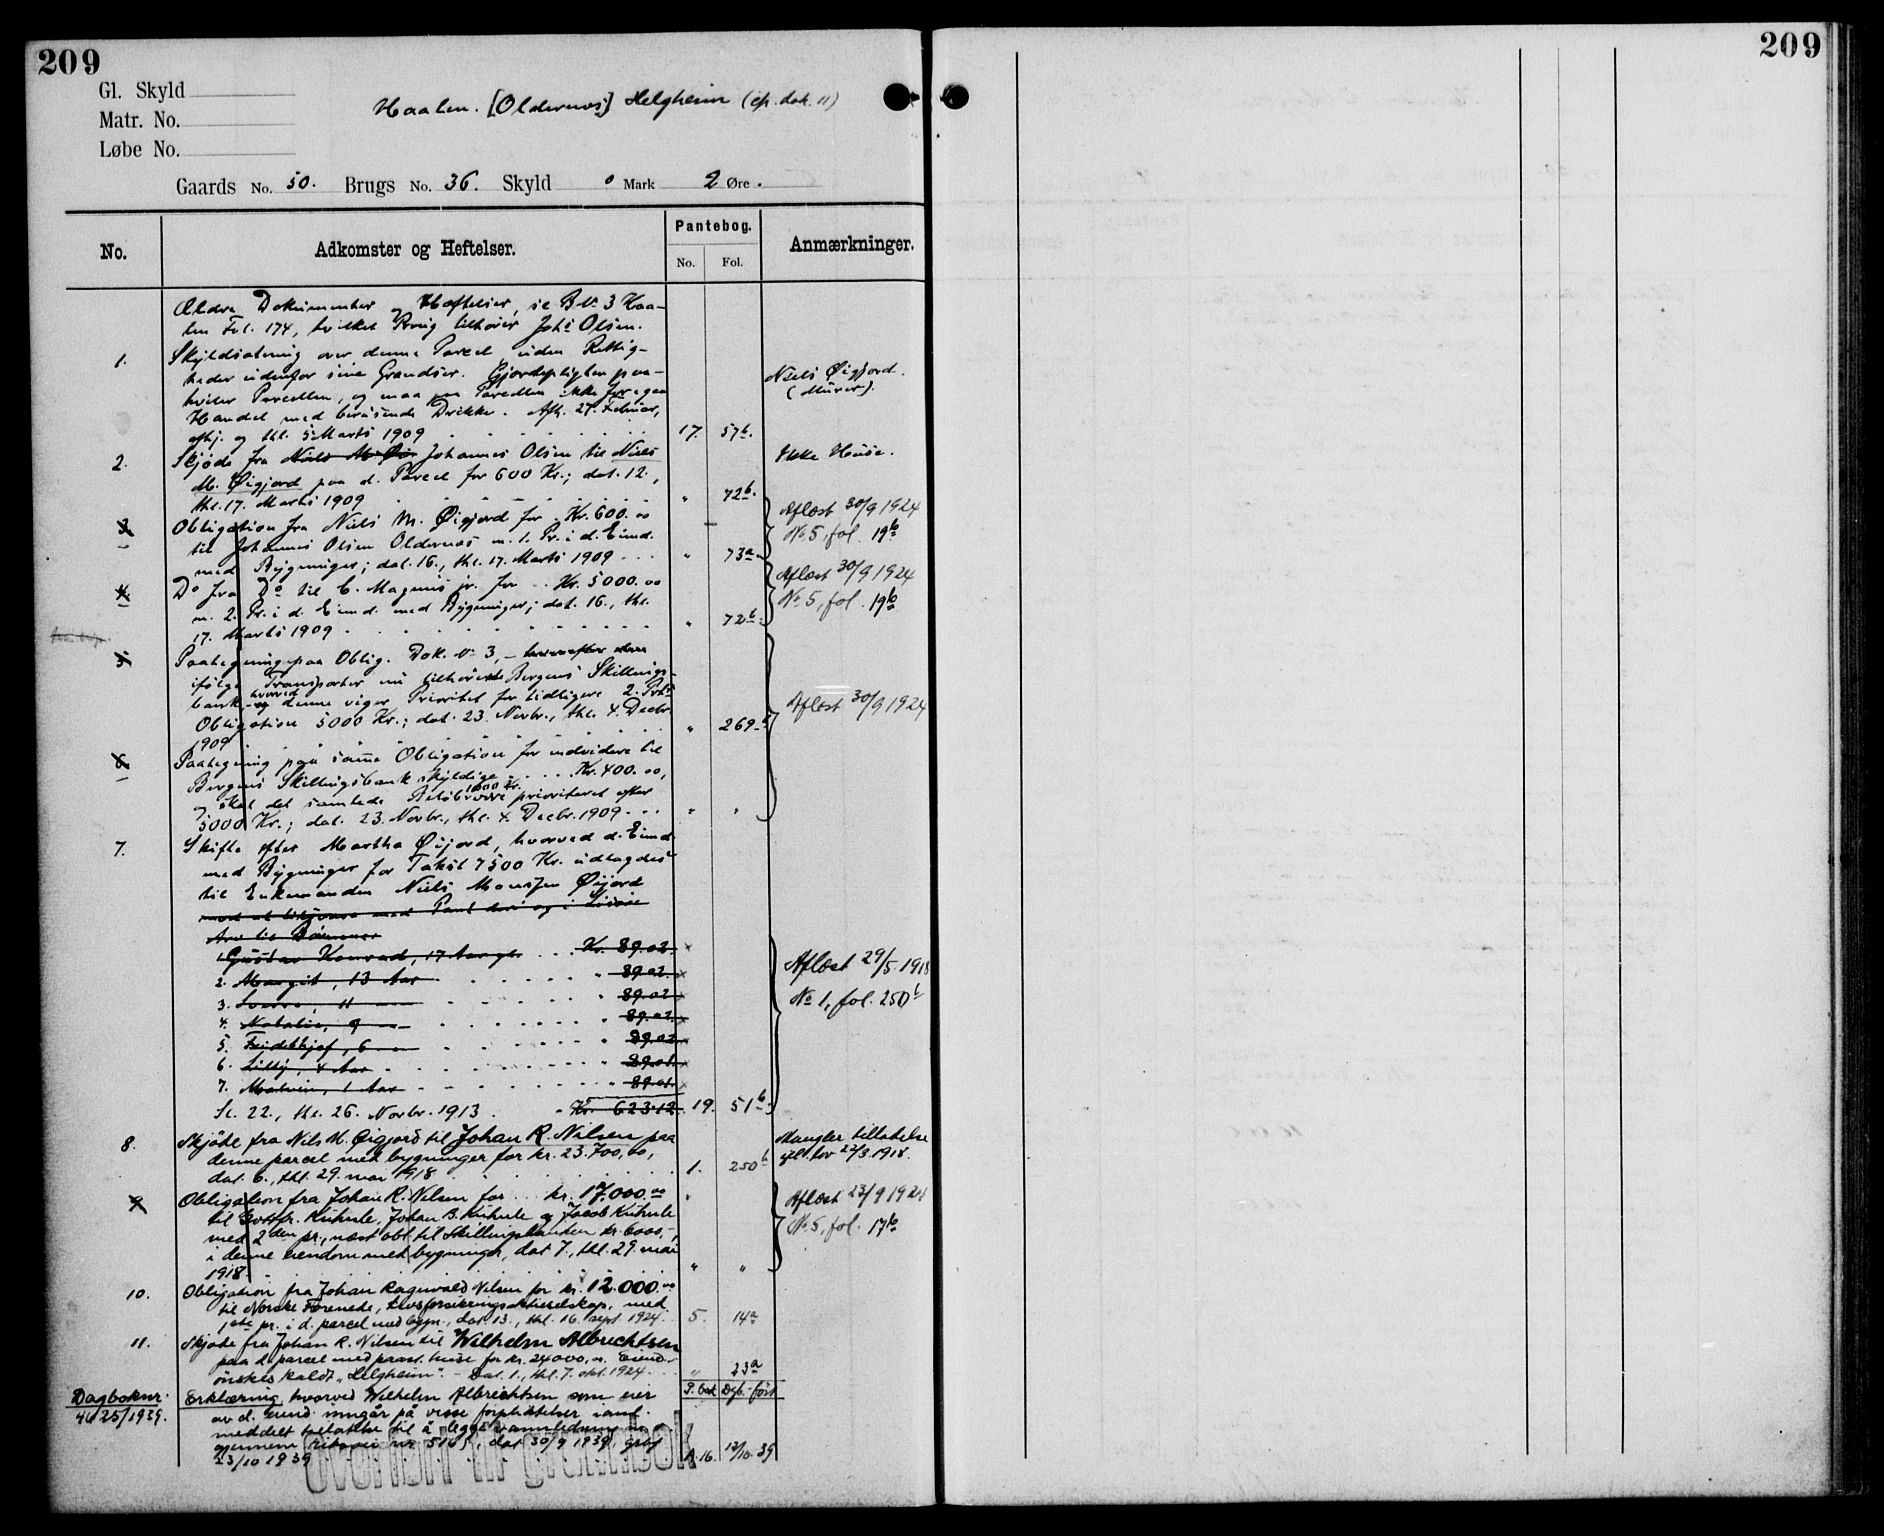 209
209
Gl. Skyld
Matr. No.
Løbe No.
Haalen. [Oldernes] Helgheim (cfr. dok. 11)
Gaards No. 50. Brugs No. 36. Skyld 0 Mark 2 Øre.
No. Adkomster og Heftelser. Pantebog. No. Fol. Anmærkninger.
Ældre Dokumenter og Hæftelser, se B № 3 Haa-
len Fol. 174, hvilket Brug tilhører Johs Olsen.
1. Skyldsætning over denne Parcel uden Rettig-
heder udenfor sine Grændser. Gjærdepligten paa-
hviler Parcellen, og maa paa Parcellen ikke foregaa
Handel med berusende Drikke. Afh. 27. Februar,
afhj. og thl. 5 Marts 1909 17. 57b.
Niels Øigjord.
(Murer).
2. Skjøde fra Niels M. Øi Johannes Olsen til Niels
M. Øigjord paa d. Parcel for 600 Kr.; dat. 12,
thl. 17. Marts 1909 " 72b.
Ikke Huse.
3. Obligation fra Niels M. Øigjord for Kr. 600.00
til Johannes Olsen Oldernes m. 1. Pr. i d. Eiend.
med Bygninger; dat. 16., thl. 17. Marts 1909 " 73a.
Aflæst 30/9 1924
№ 5, fol. 19b
4. Do fra Do til C. Magnus jr. for Kr. 5000.00
m. 2. Pr. i d. Eiend. med Bygninger; dat. 16., thl.
17. Marts 1909 " 72b.
Aflæst 30/9 1924
№ 5, fol. 19b
5. Paategning paa Oblig. Dok. № 3, – hvorefter den
ifølge Transporter nu tilhørende Bergens Skillings-
bank, – hvorved denne viger Prioritet for tidligere 2. Prts
Obligation 5000 Kr.; dat. 23. Novbr., thl. 4. Decbr.
1909 " 269b
Aflæst 30/9 1924
6. Paategning paa samme Obligation for endvidere til
Bergens Skillingsbank skyldige Kr. 400.00,
og skal det samlede Beløb 1000 Kr. være prioriteret efter
5000 Kr.; dat. 23. Novbr., thl. 4. Decbr. 1909 " "
7. Skifte efter Martha Øijord, hvorved d. Eiend.
med Bygninger for Takst 7500 Kr. udlagdes
til Enkemanden Niels Monsen Øijord
med at tilsvare med Pant deri og i Løsøre
Arv til Børnene
1. Gustav Konrad, 17 Aar gl. Kr. 89.02
2. Margit, 13 Aar " 89.02
3. Sverre, 11 — " 89.02
4. Natalie, 9 — " 89.02
5. Fridthjof, 6 — " 89.02
6. Lilly, 4 Aar " 89.01
7. Malvin, 1 Aar " 89.01
Sl. 22., thl. 26. Novbr. 1913. Kr. 623.12 19. 51b
Aflæst 29/5 1918
№ 1, fol. 250b
8. Skjøte fra Nils M. Øigjord til Johan R. Nilsen paa
denne parcel med bygninger for kr. 23.700,00,
dat. 6., thl. 29. mai 1918 1. 250b
Mangler tilladelse
eft. lov 22/3 1918.
9. Obligation fra Johan R. Nilsen for kr. 17.000.00
til Gottfr. Kühnle, Johan B. Kühnle og Jacob Kühnle
med 2den pr., næst obl. til Skillingsbanken kr. 6000,-,
i denne eiendom med bygninger, dat 7., thl. 29. mai
1918 " "
Aflæst 23/9 1924
№ 5, fol. 17b
10. Obligation fra Johan Ragnvald Nilsen for kr. 12.000.00
til Norske Forenede, livsforsikringsaktieselskap, med
1ste pr. i d. parcel med bygn., dat 13., thl. 16. sept. 1924. 5. 14a
11. Skjøte fra Johan R. Nilsen til Wilhelm Albrechtsen
paa d. parcel med paast. huse for kr. 24000,00. Eiend.
ønskes kaldt „Helgheim". – Dat. 1., thl. 7. okt. 1924. " 23a
P. bok Dgb. ført
Dagboknr.
4625/1939.
Erklæring, hvorved Wilhelm Albrechtsen som eier
av d. eiend. inngår på visse forpliktelser i anl.
meddelt tillatelse til å legge vannledning
gjennem riksvei nr. 516, dat 30/9 1939, grbf
23/10 1939 A. 16. 12/10. 39
Overført til grunnbok